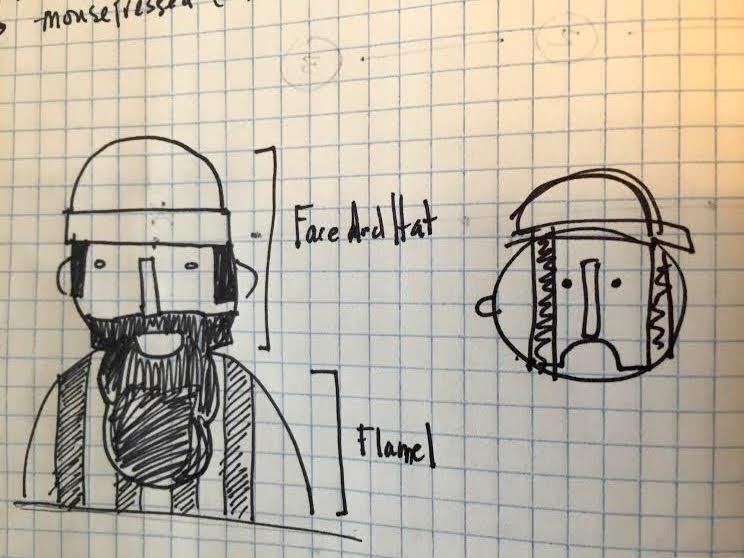 mousePressed
Face And Hat
Flamel